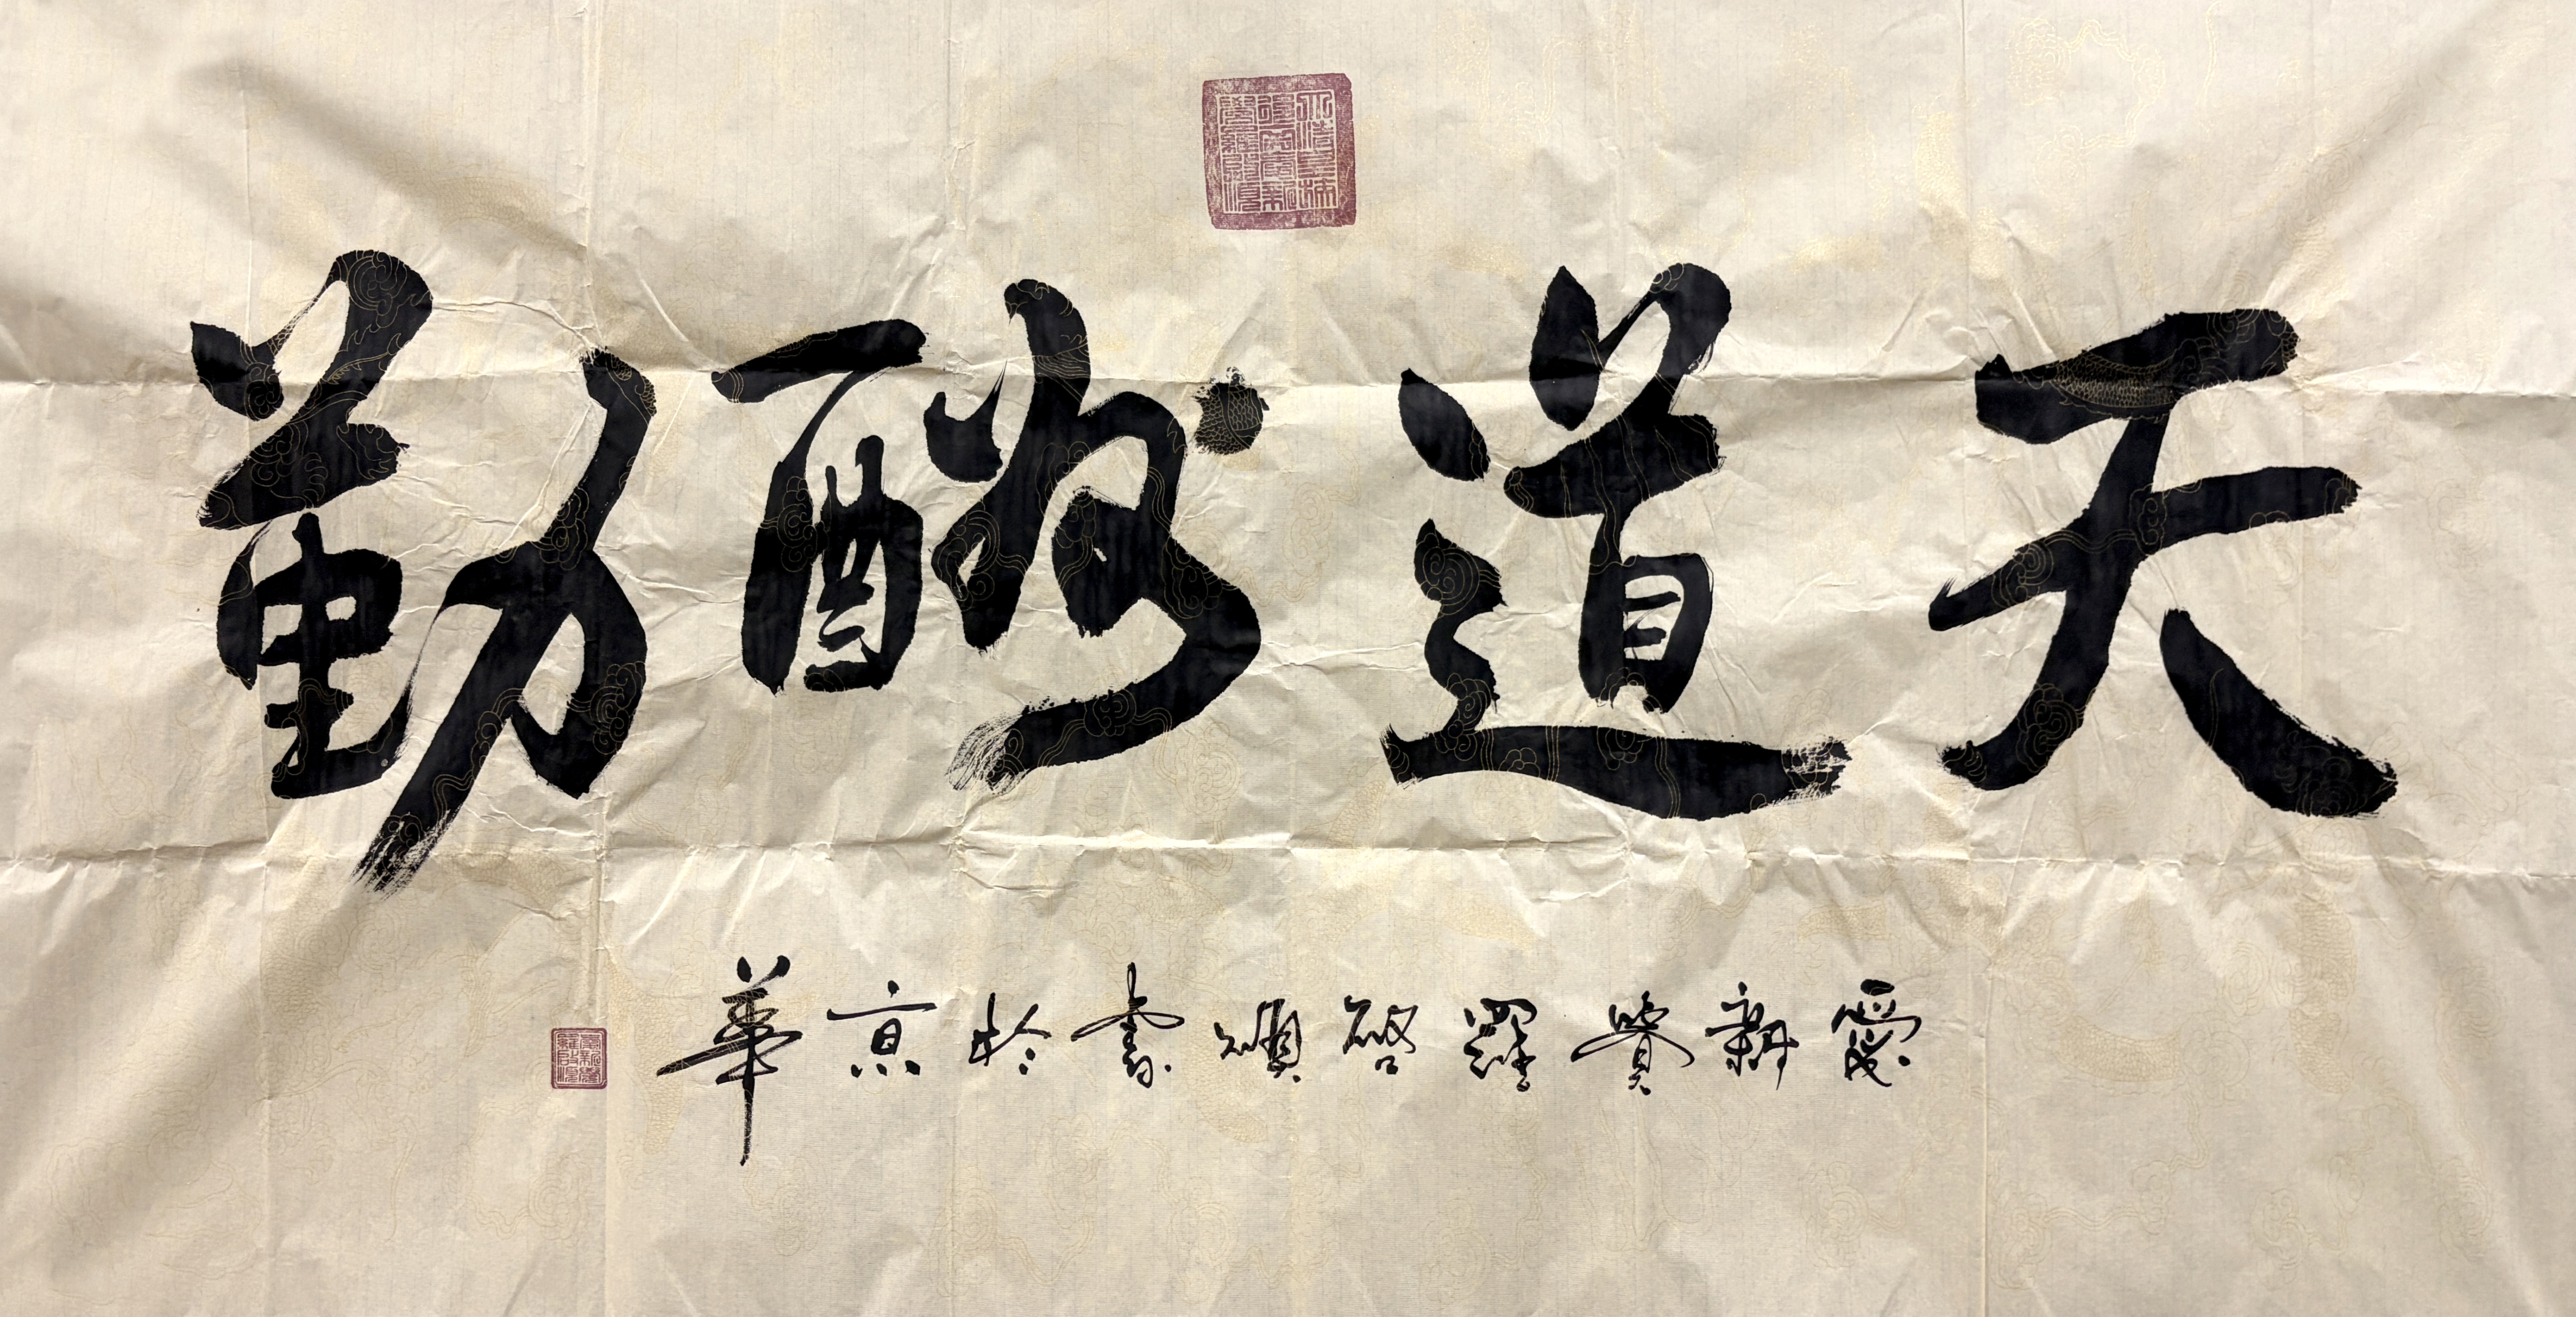 天道酬勤
愛新覺羅啓書於京華